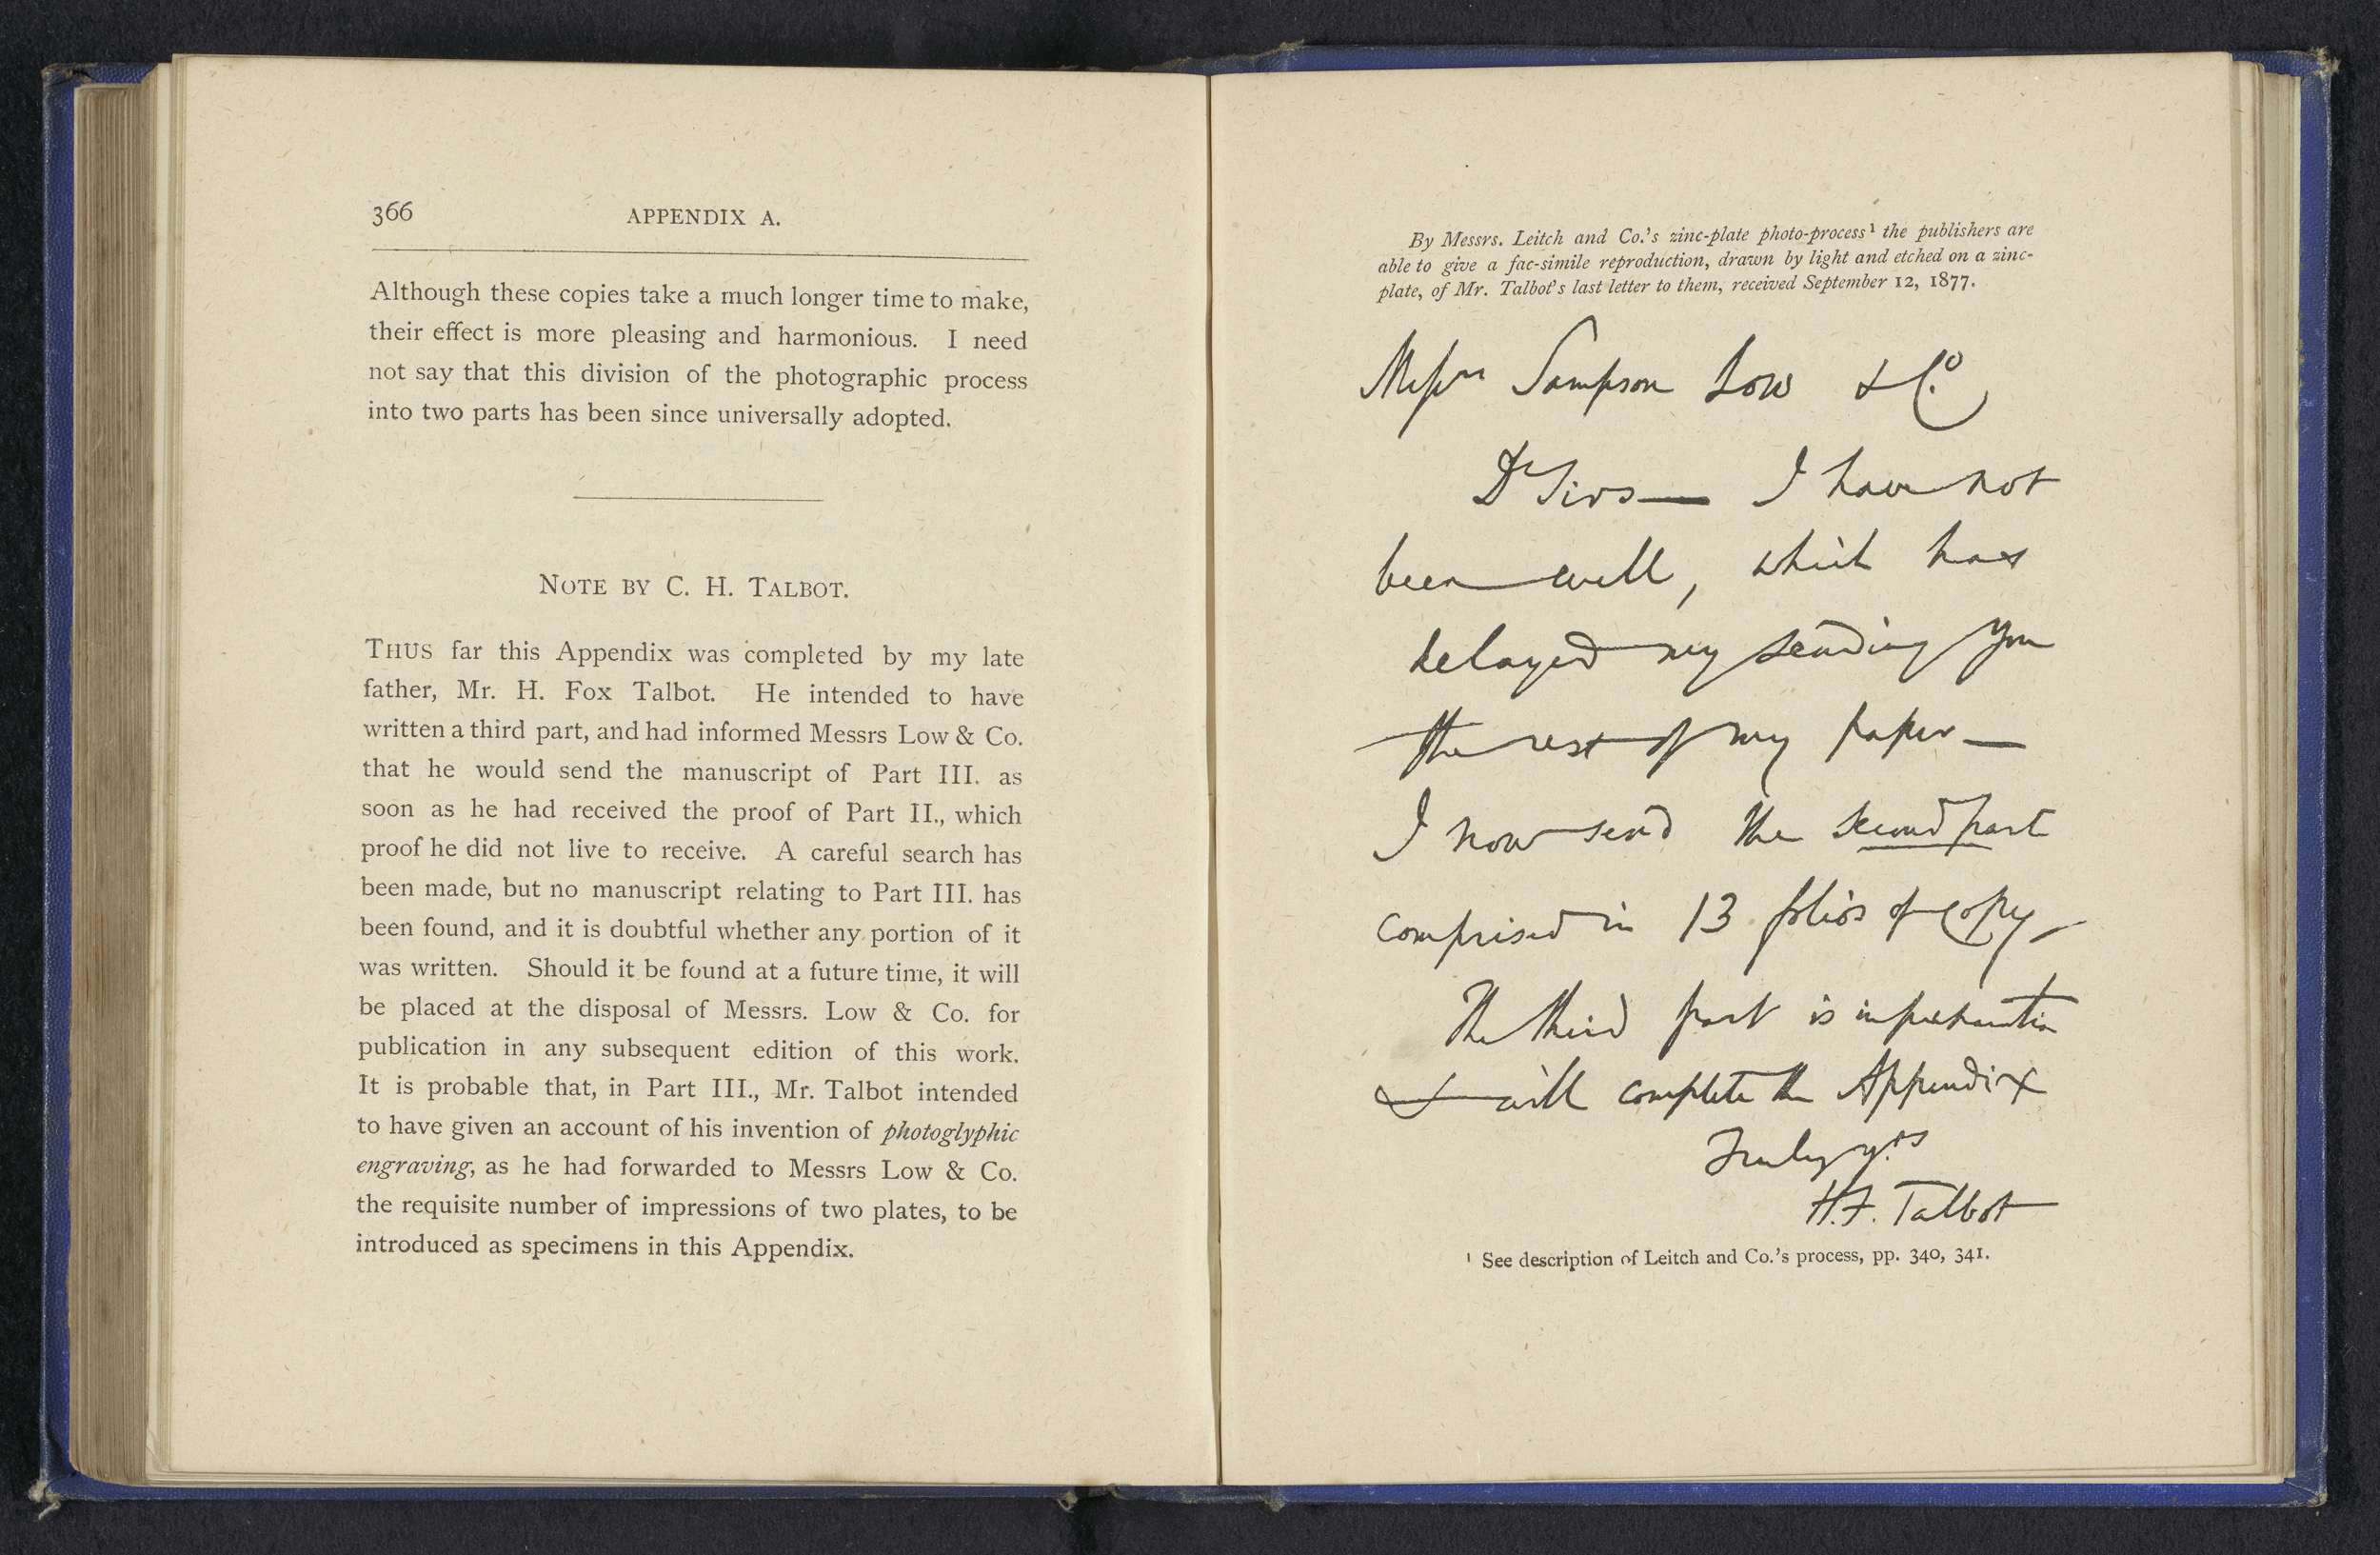 366 APPENDIX A.
Although these copies take a much longer time to make,
their effect is more pleasing and harmonious. I need
not say that this division of the photographic process
into two parts has been since universally adopted.
NOTE BY C. H. TALBOT.
THUS far this Appendix was completed by my late
father, Mr. H. Fox Talbot. He intended to have
written a third part, and had informed Messrs Low & Co.
that he would send the manuscript of Part III. as
soon as he had received the proof of Part II., which
proof he did not live to receive. A careful search has
been made, but no manuscript relating to Part III. has
been found, and it is doubtful whether any portion of it
was written. Should it be found at a future time, it will
be placed at the disposal of Messrs. Low & Co. for
publication in any subsequent edition of this work.
It is probable that, in Part III., Mr. Talbot intended
to have given an account of his invention of photoglyphic
engraving, as he had forwarded to Messrs Low & Co.
the requisite number of impressions of two plates, to be
introduced as specimens in this Appendix.
By Messrs. Leitch and Co.'s zinc-plate photo-process¹ the publishers are
able to give a fac-simile reproduction, drawn by light and etched on a zinc-
plate, of Mr. Talbot's last letter to them, received September 12, 1877.
Messrs Sampson Low & Co
Dr Sirs — I have not
been well, which has
delayed my sending you
the rest of my paper —
I now send the second part
comprised in 13 folios of copy —
The third part is in preparation
& will complete the Appendix
Truly yrs
H.F. Talbot
¹ See description of Leitch and Co.'s process, pp. 340, 341.